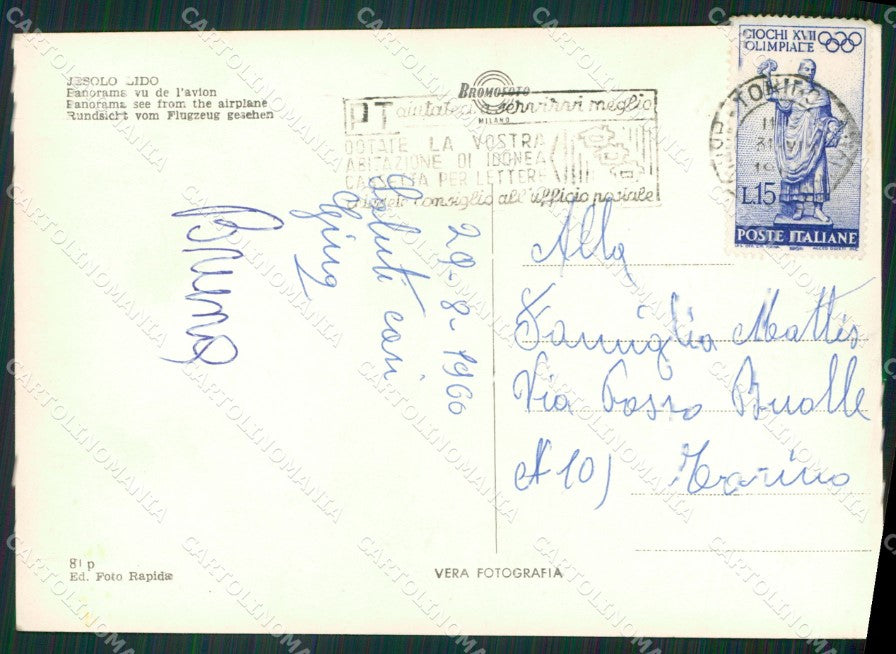 JESOLO LIDO
Panorama vu de l'avion
Panorama see from the airplane
Rundsicht vom Flugzeug gesehen
BROMOFOTO
MILANO
PT aiutateci a servirvi meglio
DOTATE LA VOSTRA
ABITAZIONE DI IDONEA
CASSETTA PER LETTERE
consiglio all'ufficio postale
TORINO
GIOCHI XVII
OLIMPIADE
L.15
POSTE ITALIANE
29-8-1960
Saluti cari
Gina
Bruna
Alla
Famiglia Mattis
Via
A 101 Torino
81 p
Ed. Foto Rapida
VERA FOTOGRAFIA
CARTOLINOMANIA